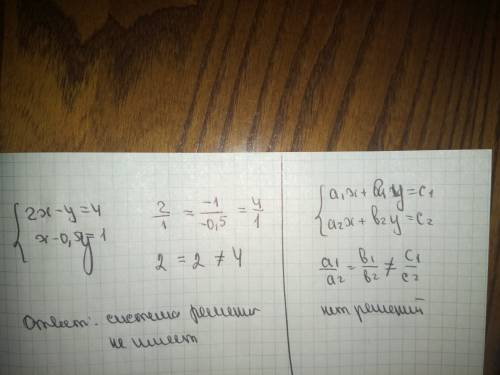 2x-y=4
x-0,5y=1
2/1 = -1/-0,5 = 4/1
2 = 2 ≠ 4
Ответ: система решения
не имеет
a₁x+b₁y=c₁
a₂x+b₂y=c₂
a₁/a₂ = b₁/b₂ ≠ c₁/c₂
нет решений